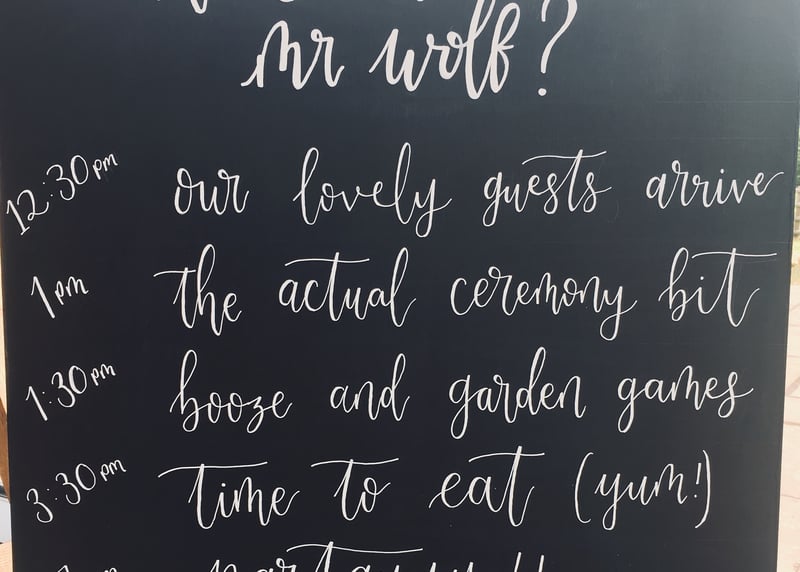 mr wolf?
12:30pm our lovely guests arrive
1pm the actual ceremony bit
1:30pm booze and garden games
3:30pm time to eat (yum!)